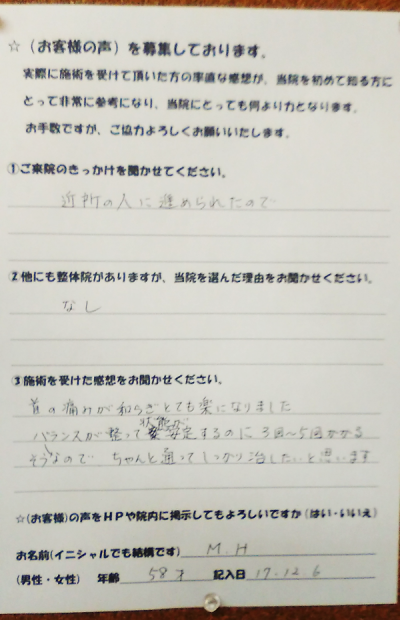 ☆（お客様の声）を募集しております。
実際に施術を受けて頂いた方の率直な感想が、当院を初めて知る方に
とって非常に参考になり、当院にとっても何より力となります。
お手数ですが、ご協力よろしくお願いいたします。
①ご来院のきっかけを聞かせてください。
近所の人に進められたので
②他にも整体院がありますが、当院を選んだ理由をお聞かせください。
なし
③施術を受けた感想をお聞かせください。
首の痛みが和らぎとても楽になりました
状態が
バランスが整って安定するのに3回～5回かかる
そうなので ちゃんと通ってしっかり治したいと思います
☆(お客様)の声をHPや院内に掲示してもよろしいですか(はい・いいえ)
お名前(イニシャルでも結構です) M.H
(男性・女性) 年齢 58才 記入日 17.12.6